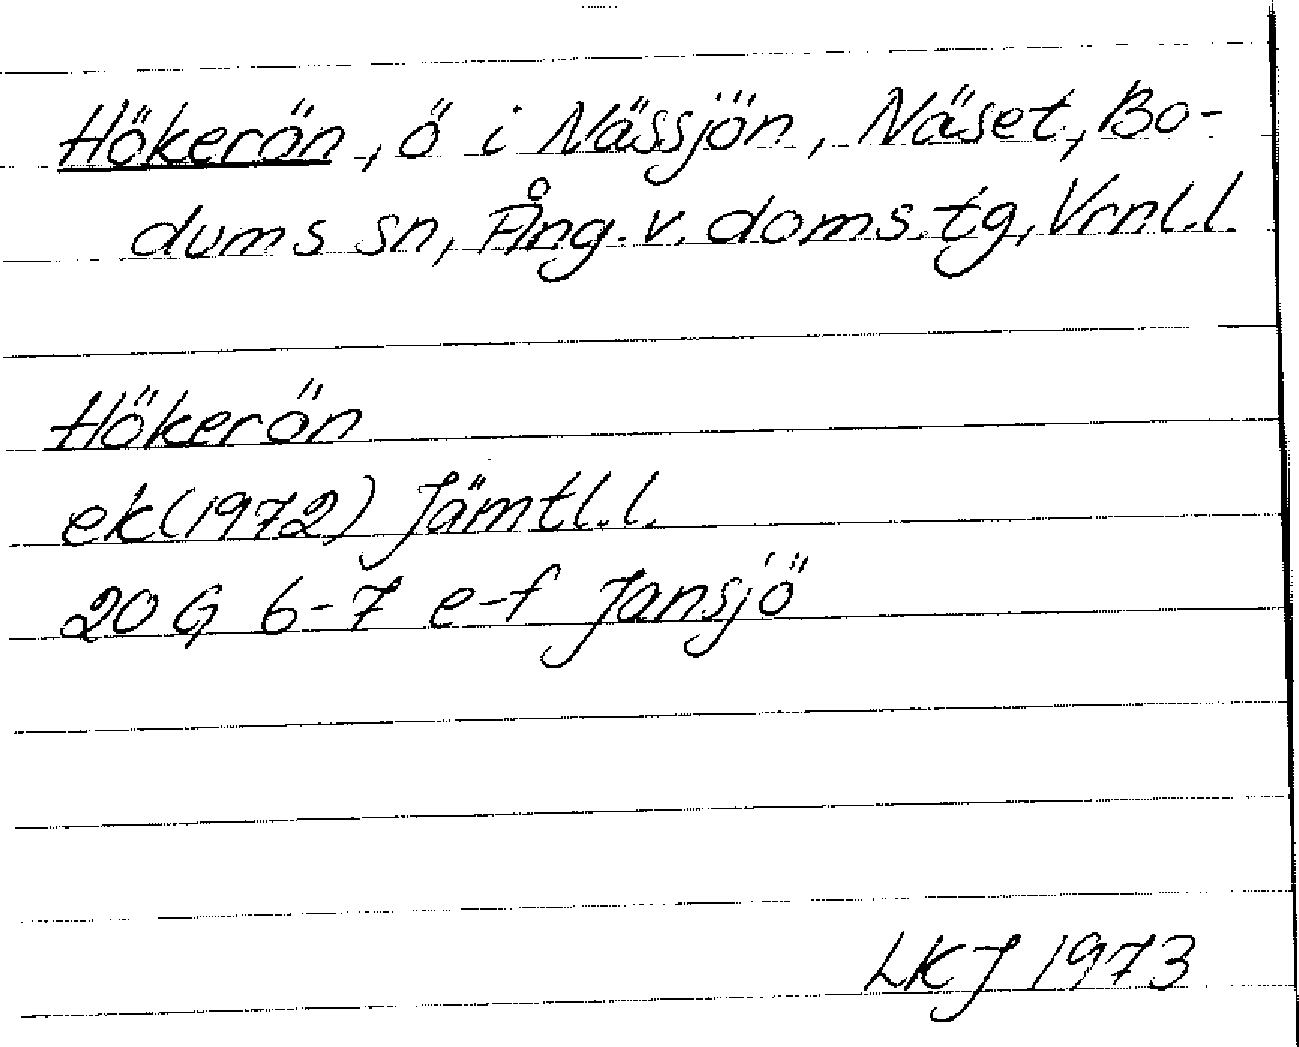 Hökerön, ö i Nässjön, Näset, Bo-
dums sn, Ång. v. doms.tg, Vrnl.l.
Hökerön
ek(1972) Jämtl.l.
20 G 6-7 e-f Jansjö
LKJ 1973